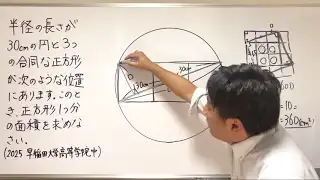 半径の長さが
30cmの円と3つ
の合同な正方形
が次のような位置
にあります。このと
き、正方形1つ分
の面積を求めなさ
い。
(2025 早稲田大学高等学院中)
30cm
30cm
10=
=360(cm²)